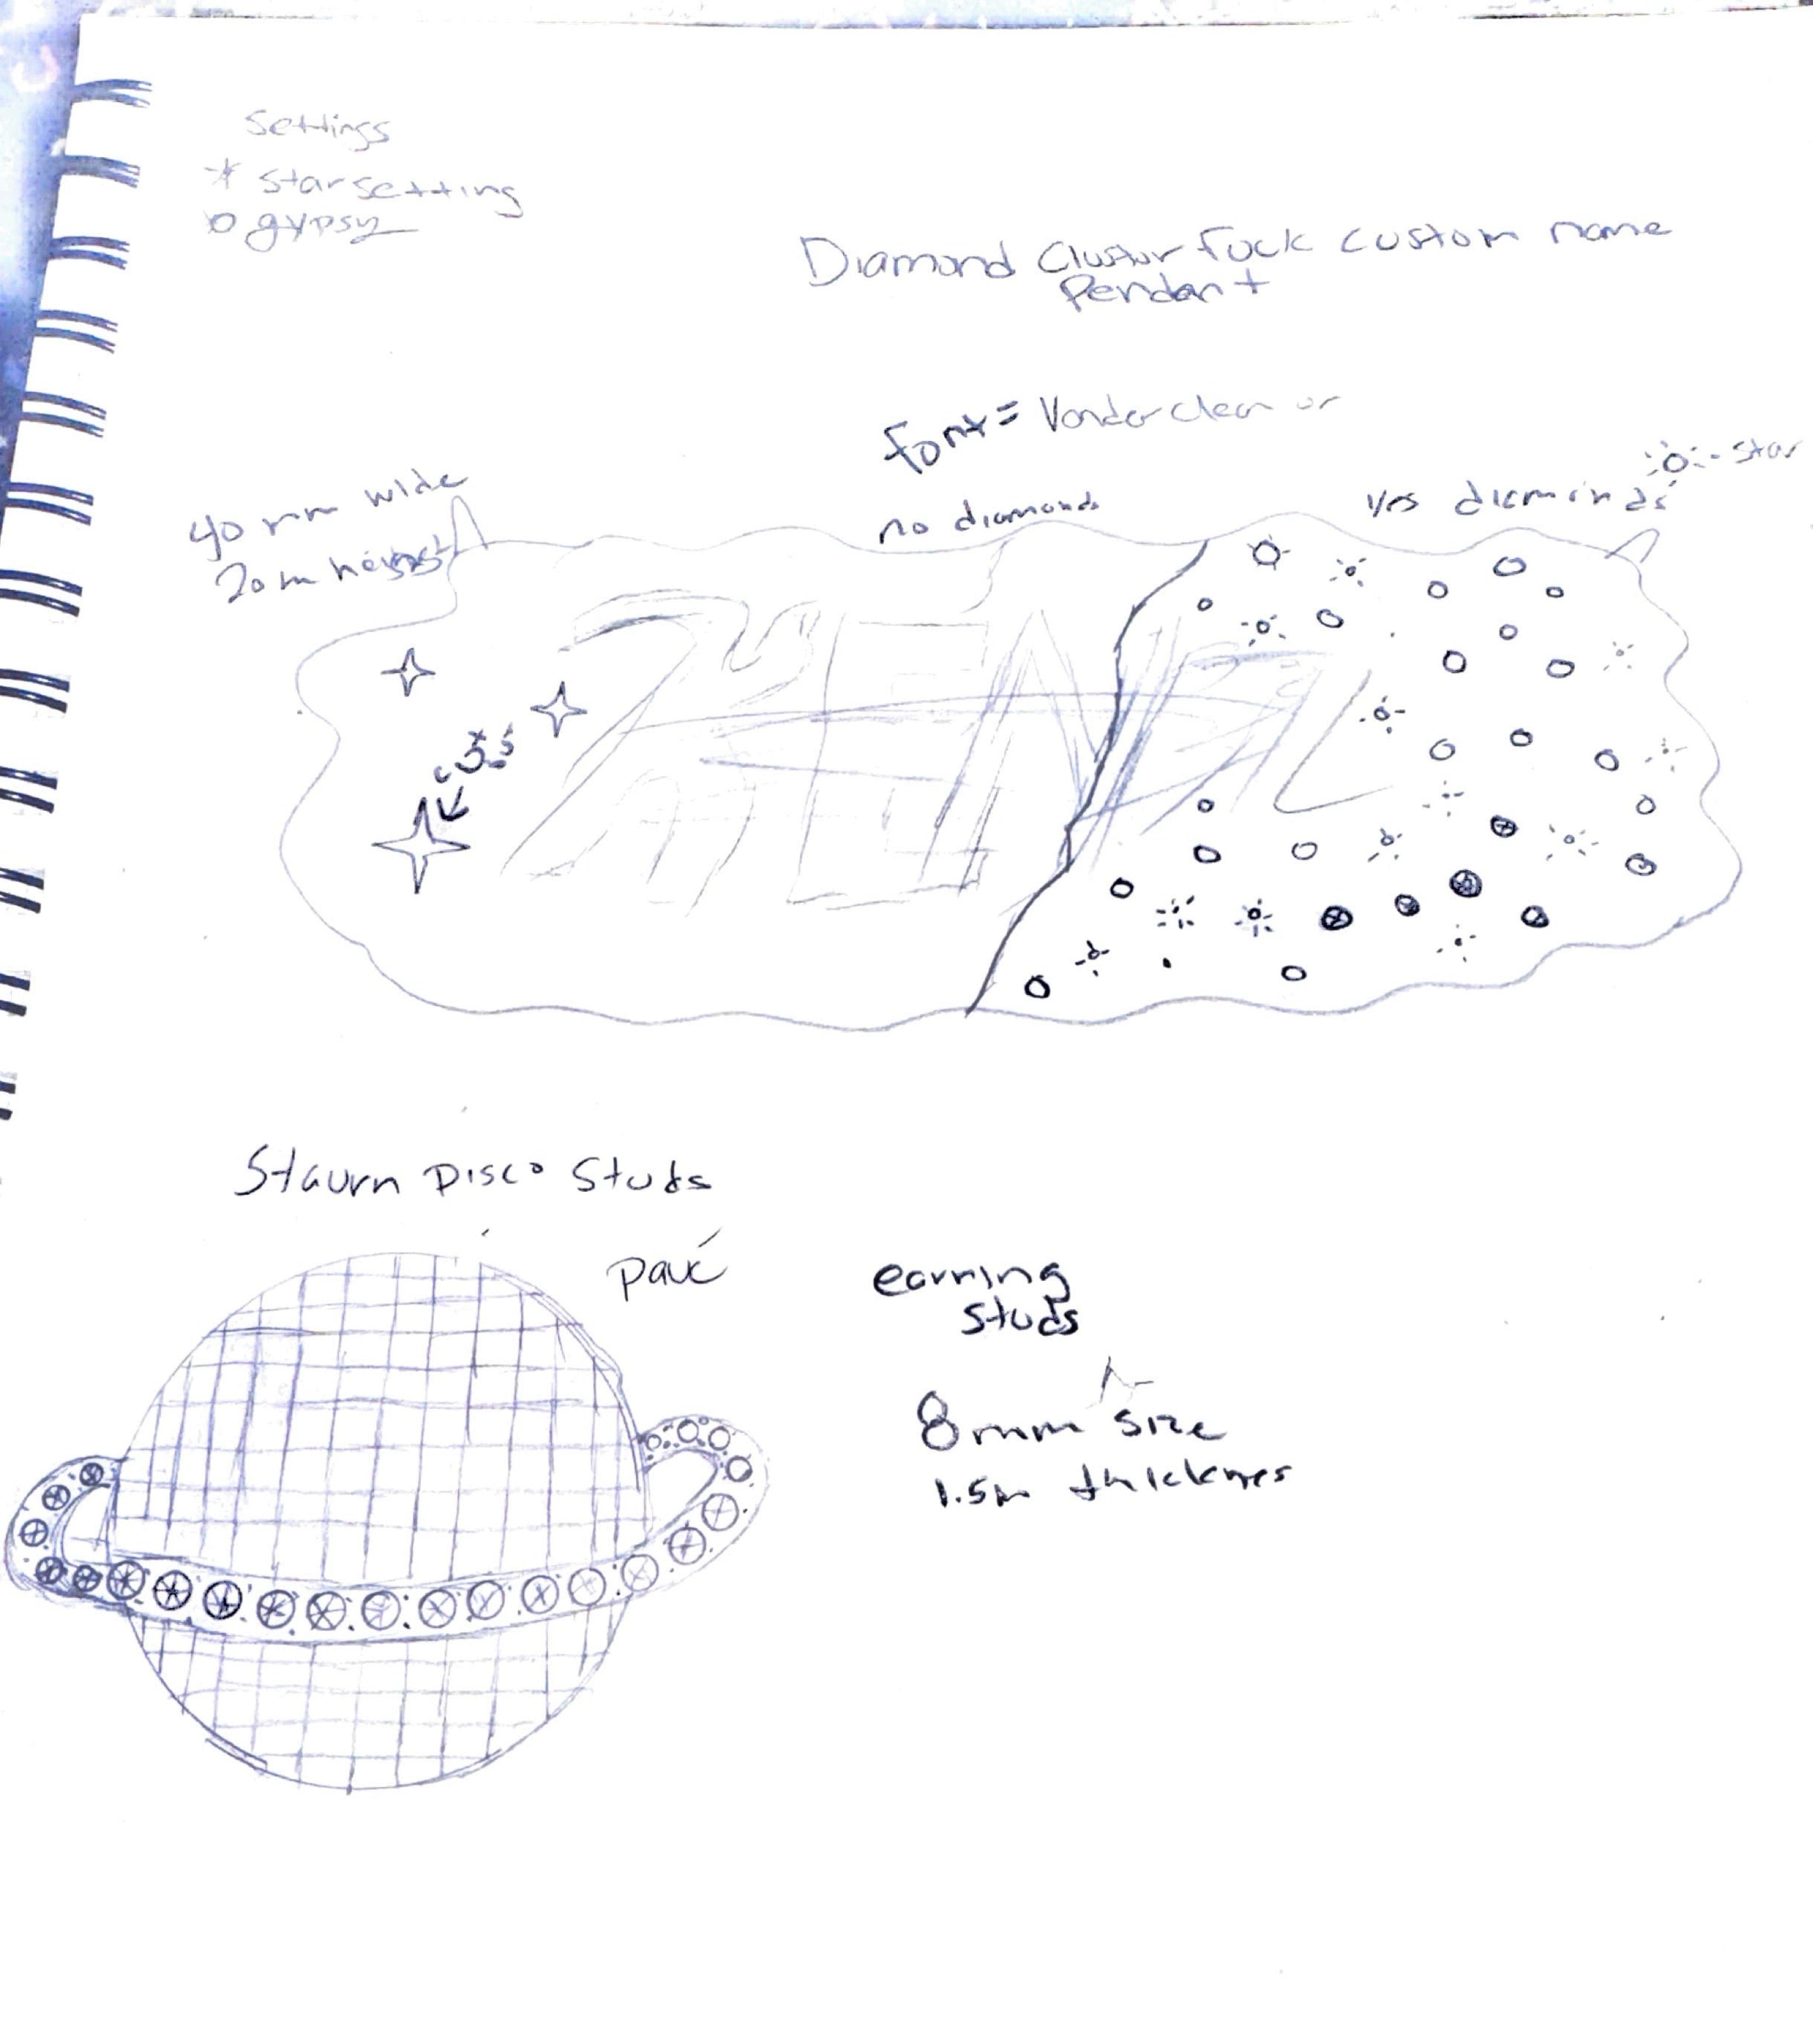 Settings
* star setting
o gypsy
Diamond Clustur fuck custom name
Pendant
font = Vonder clean or
40 mm wide
20 m height
no diamonds
yes diaminds
- star
Staurn Disco Studs
pavé
earring
studs
8mm size
1.5m thickness